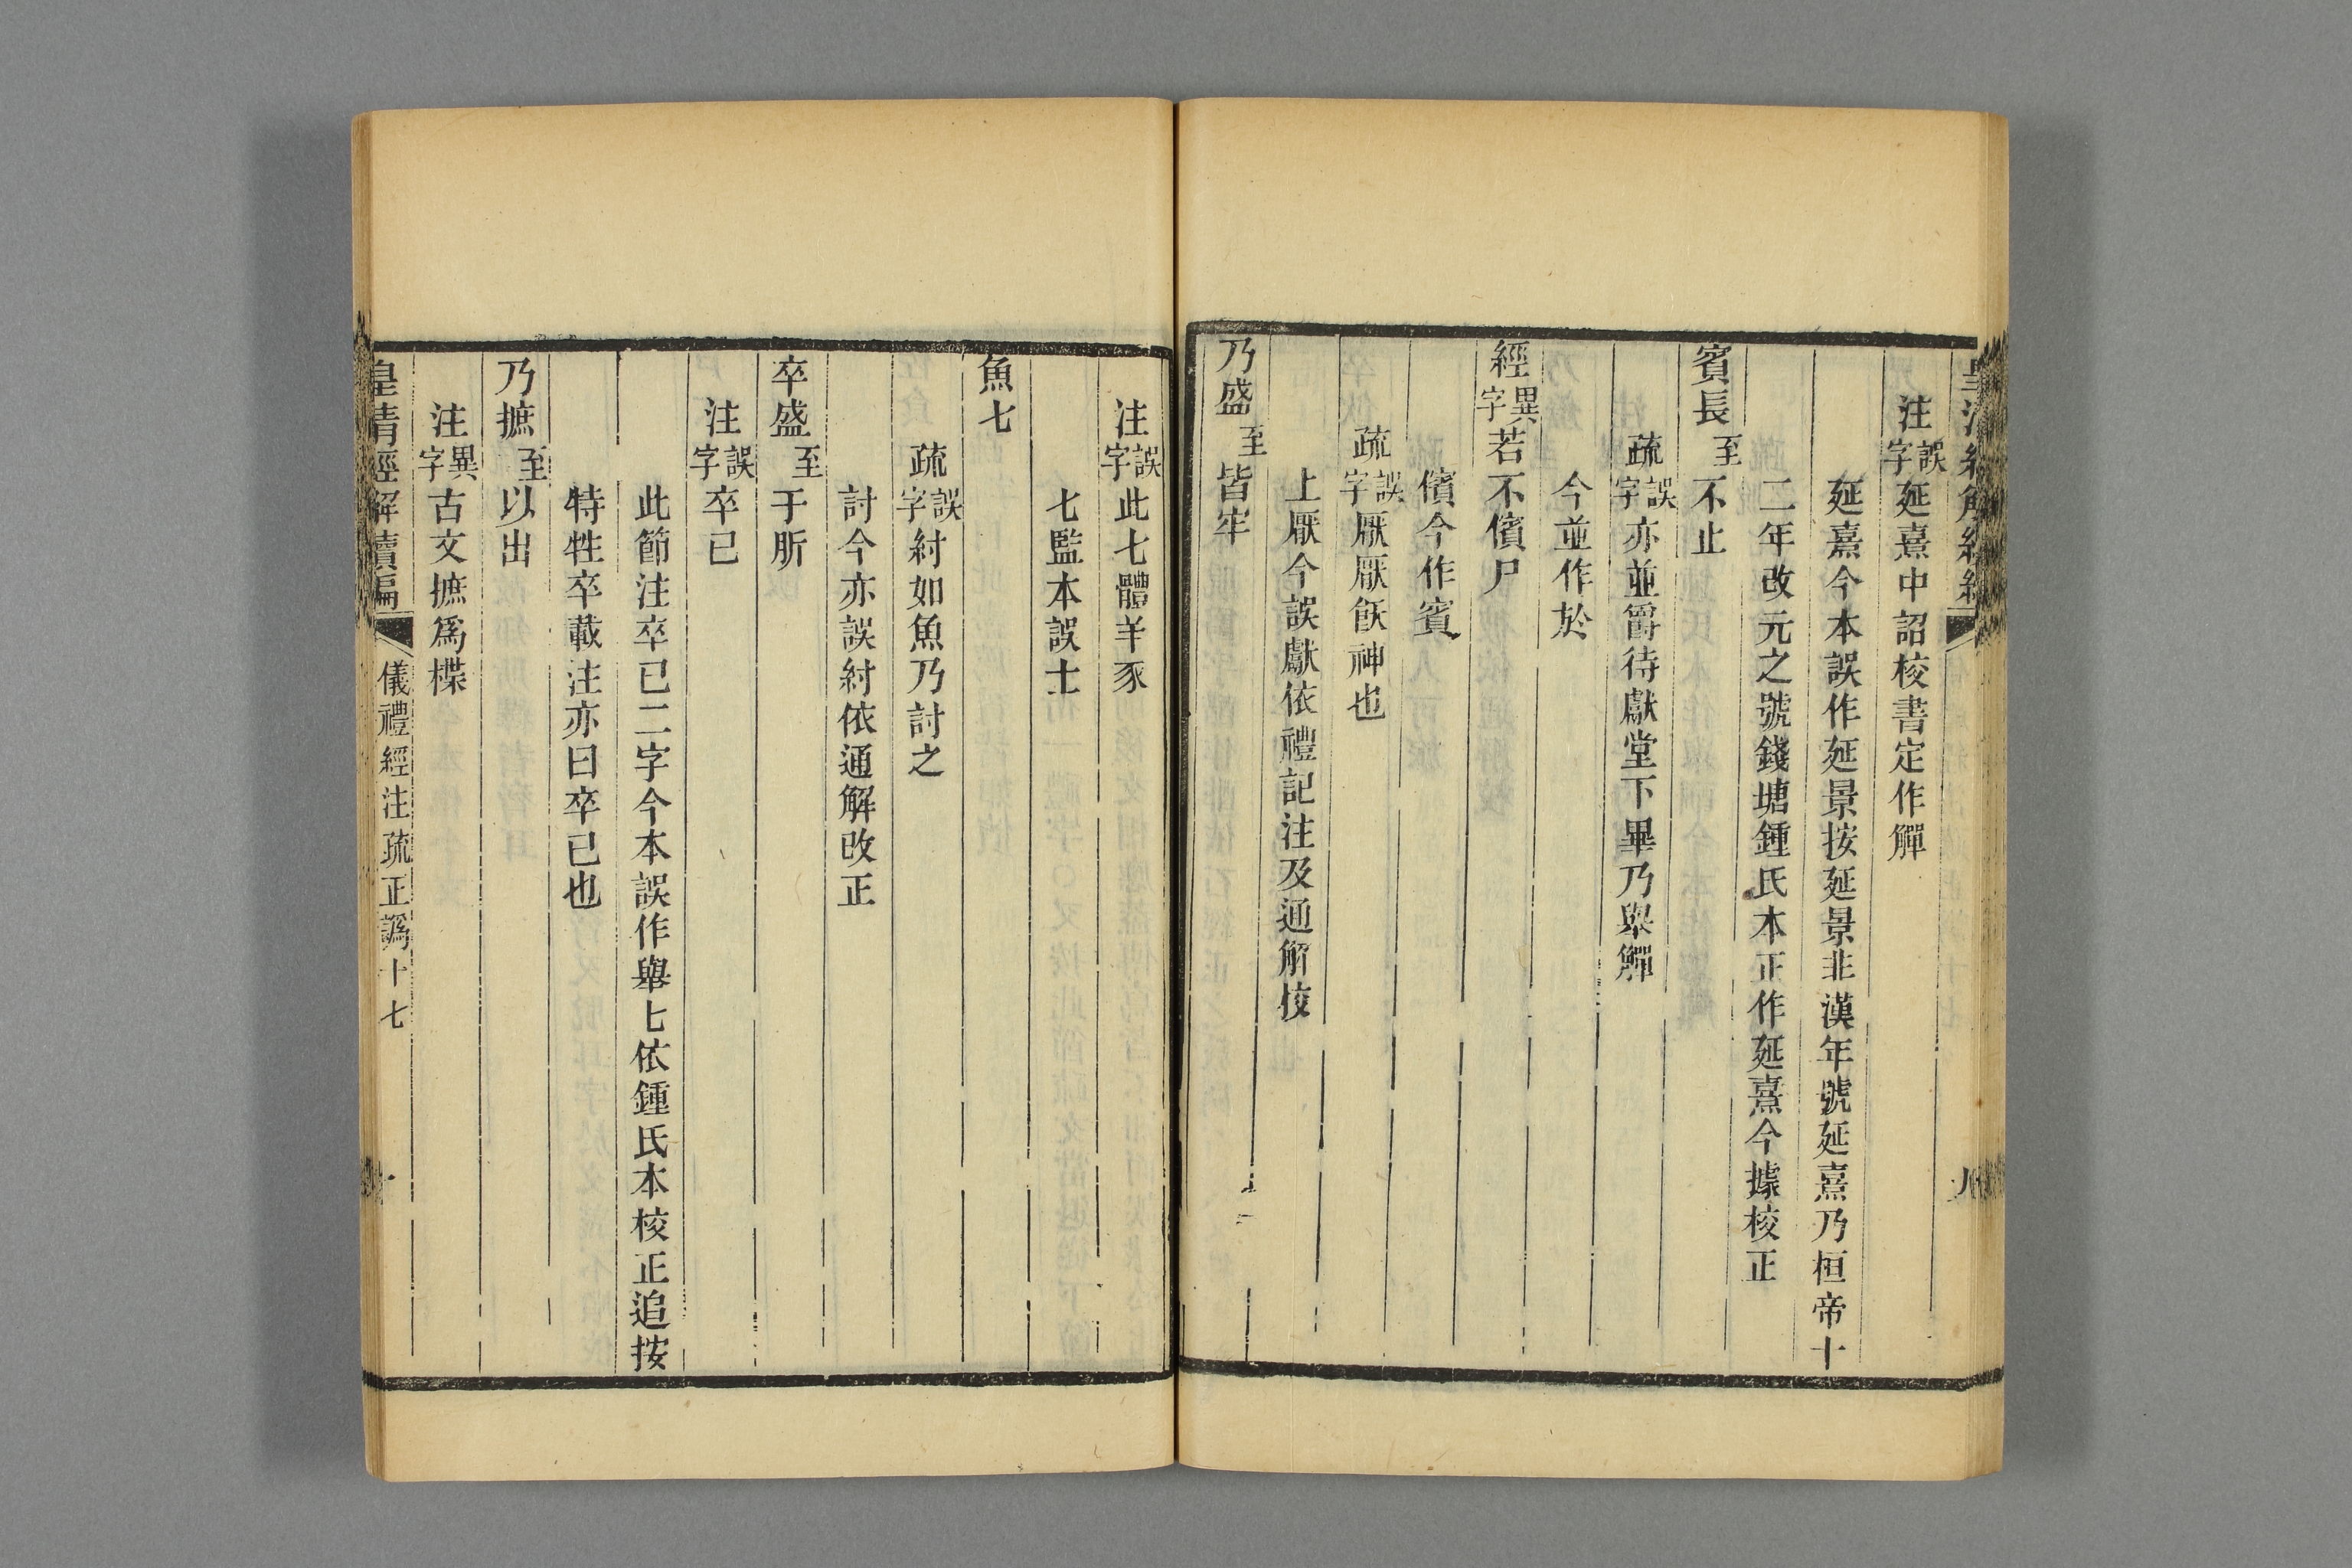 注誤字延熹中詔校書定作觶
延熹今本誤作延景按延景非漢年號延熹乃桓帝十
二年改元之號錢塘鍾氏本正作延熹今據校正
賓長至不止
疏誤字亦並爵待獻堂下畢乃舉觶
今並作於
經異字若不儐尸
儐今作賓
疏誤字厭厭飫神也
上厭今誤獻依禮記注及通解校
乃盛至皆牢
注誤字此七體羊豕
七監本誤士
魚七
疏誤字紂如魚乃討之
討今亦誤紂依通解改正
卒盛至于肵
注誤字卒已
此節注卒已二字今本誤作舉七依鍾氏本校正追按
特牲卒載注亦曰卒已也
乃摭至以出
注異字古文摭爲楪
皇清經解續編 儀禮經注疏正譌十七